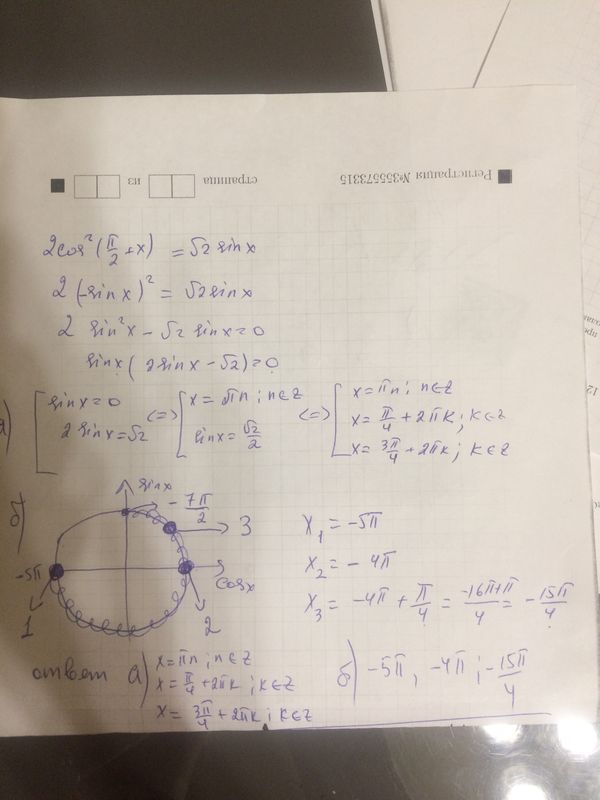 Регистрация №3555573315 страница из
2cos²(π/2 + x) = √2 sinx
2(-sinx)² = √2 sinx
2 sin²x - √2 sinx = 0
sinx(2sinx - √2) = 0
а) [ sinx = 0 ; 2 sinx = √2 <=> [ x = πn; n∈Z ; sinx = √2/2 <=> [ x = πn; n∈Z ; x = π/4 + 2πk; k∈Z ; x = 3π/4 + 2πk; k∈Z
б)
sinx
-7π/2
3
-5π
cosx
1
2
x₁ = -5π
x₂ = -4π
x₃ = -4π + π/4 = (-16π+π)/4 = -15π/4
ответ а) x = πn; n∈Z
x = π/4 + 2πk; k∈Z
x = 3π/4 + 2πk; k∈Z
б) -5π, -4π; -15π/4